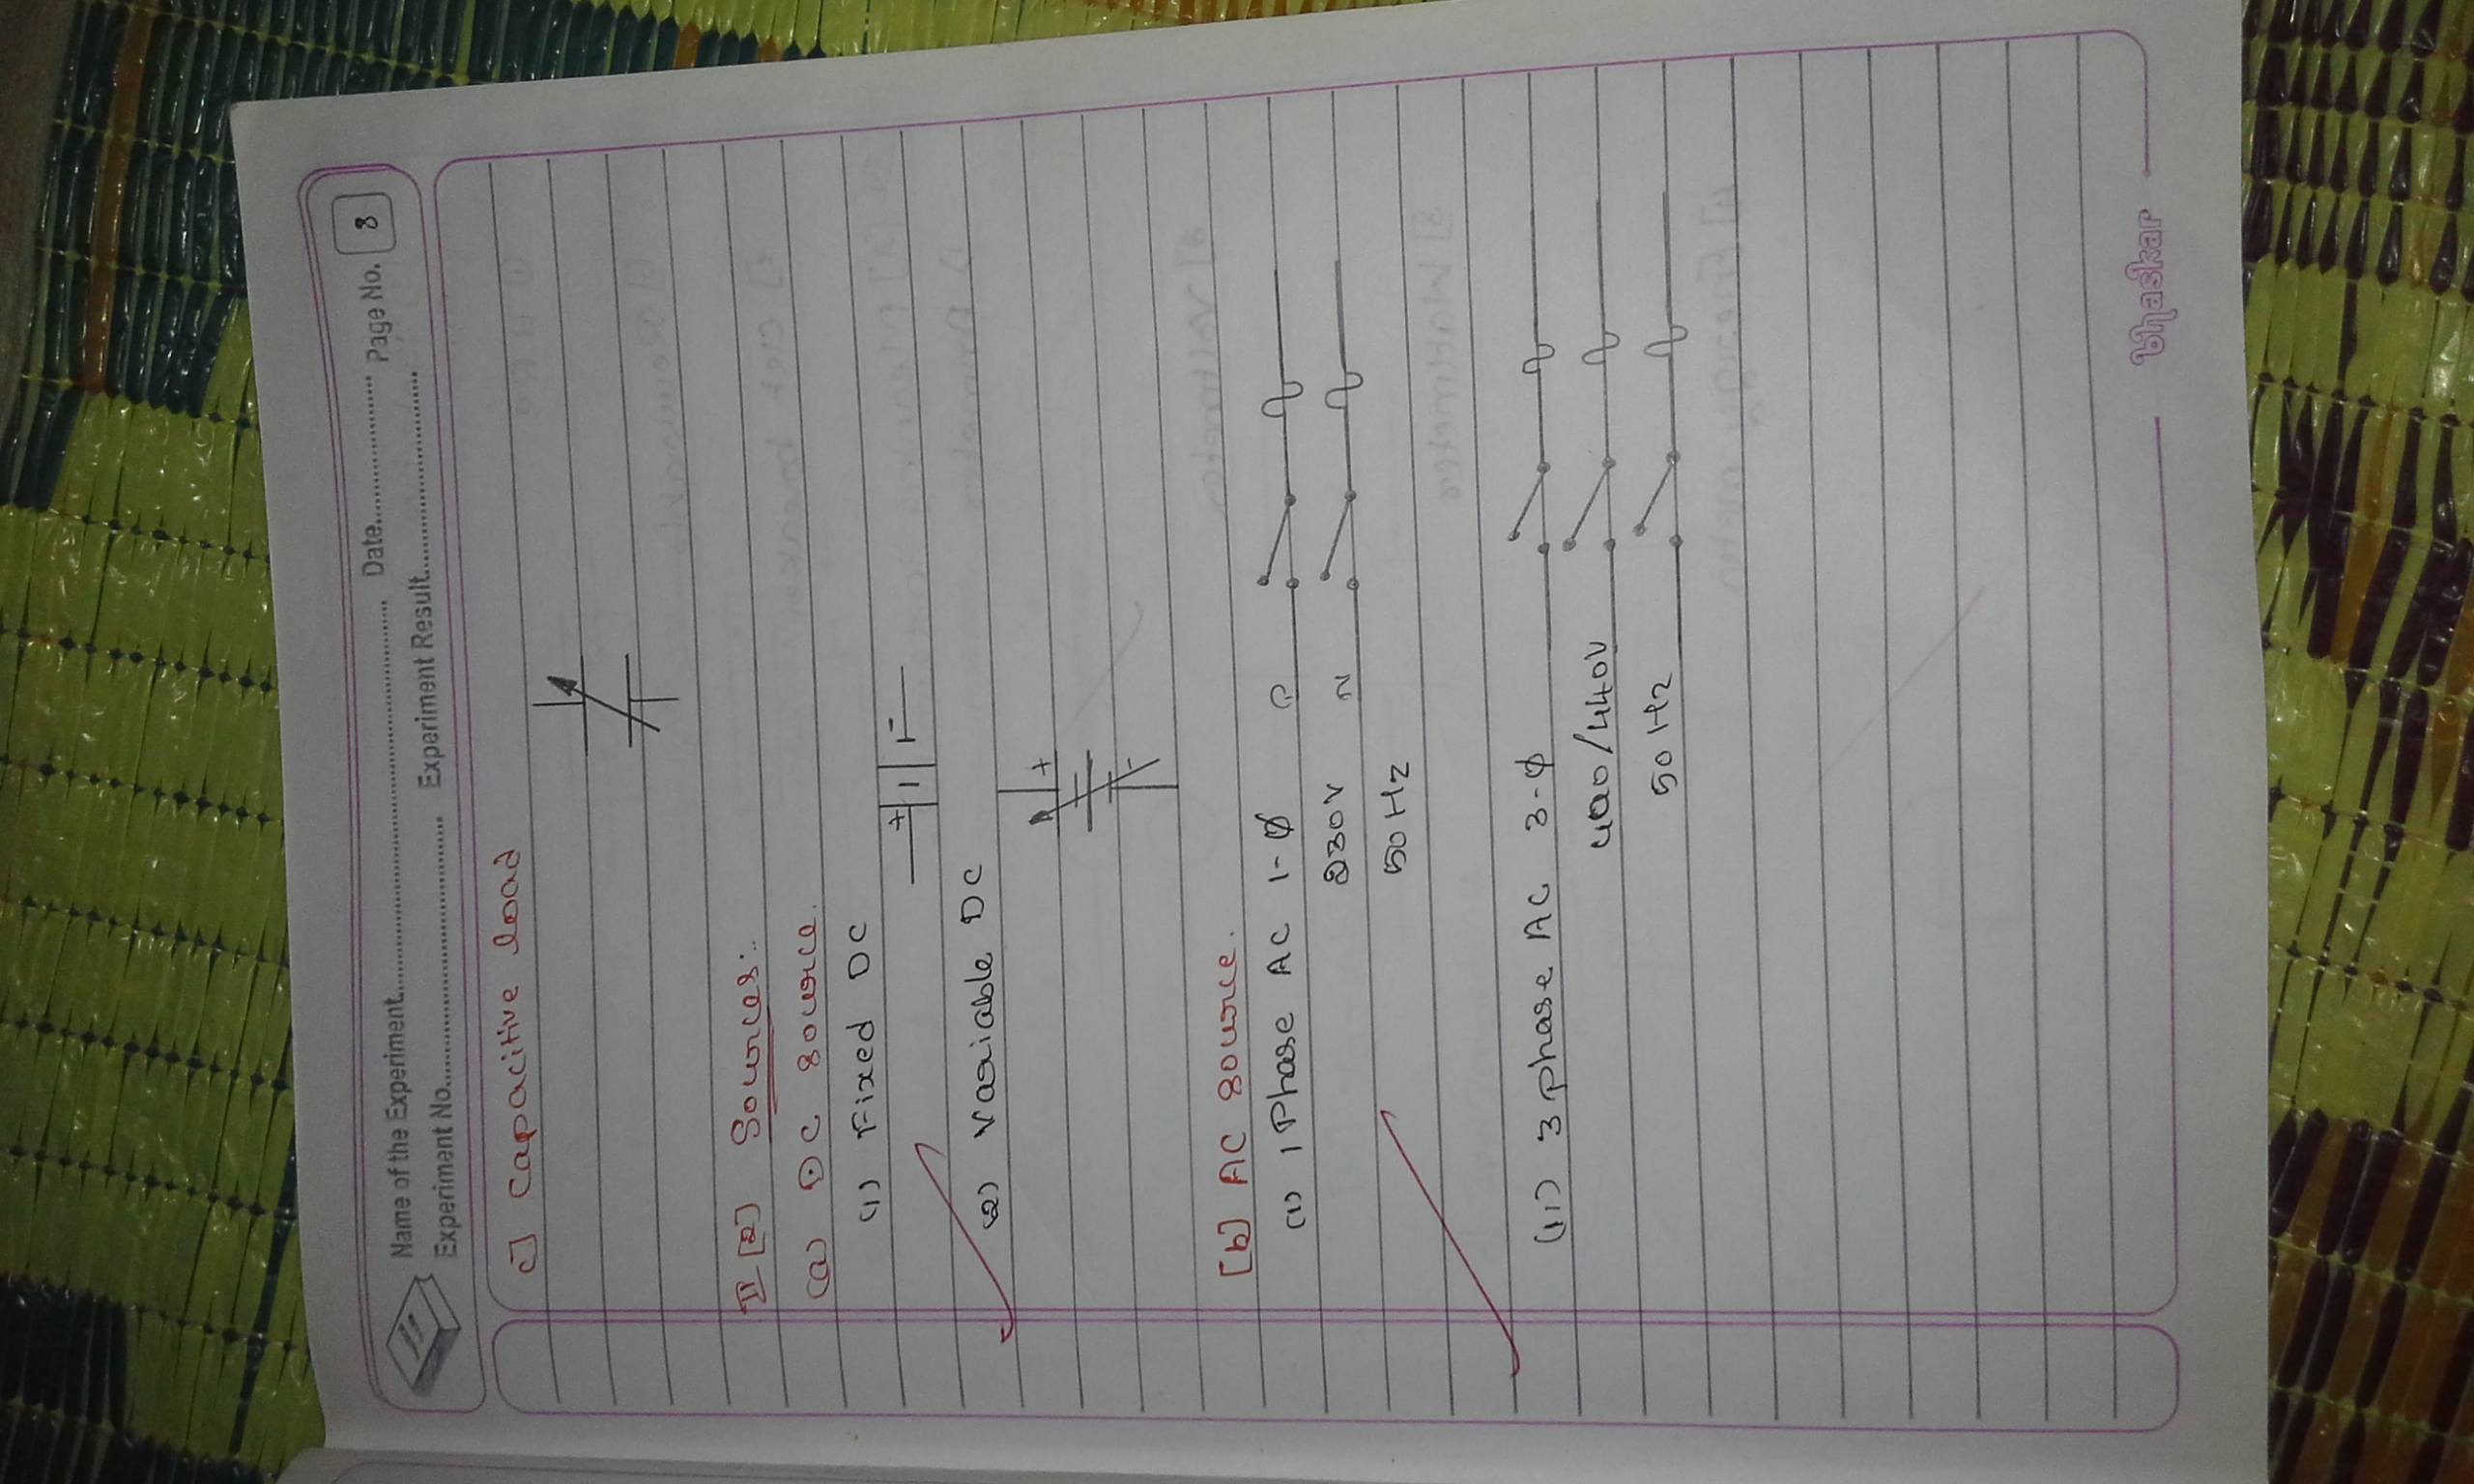 Name of the Experiment Date Page No. 8
Experiment No. Experiment Result
c] Capacitive load
[2] Sources:
(a) DC source.
(1) Fixed DC
+ -
(2) Variable DC
+
-
[b] AC source.
(1) 1 Phase AC 1-Φ
230V N
50 Hz
(11) 3 phase AC 3-Φ
400/440V
50 Hz
bhaskar